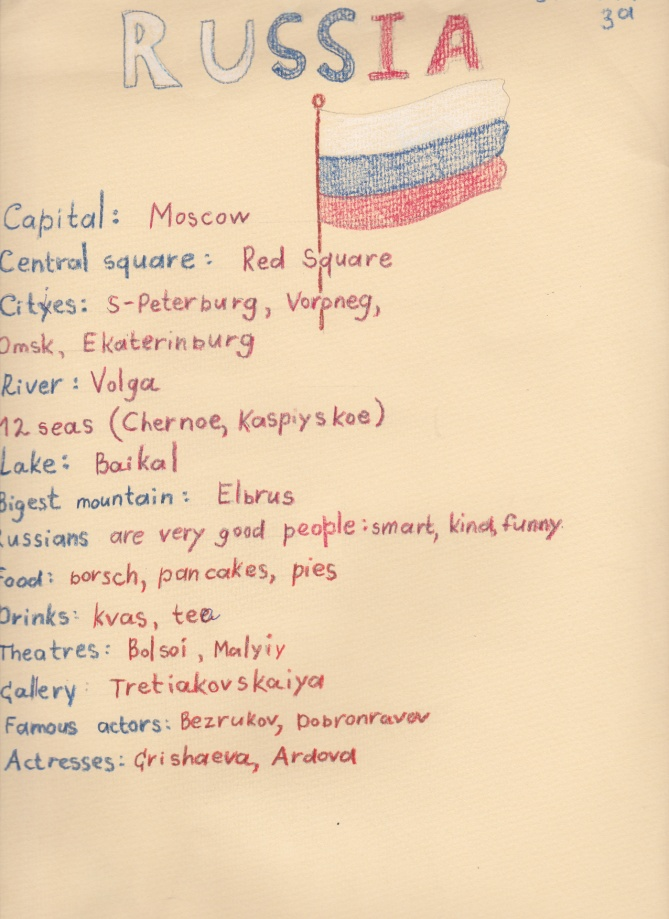 3a
RUSSIA
Capital: Moscow
Central square: Red Square
Cityes: S-Peterburg, Vorpneg,
Omsk, Ekaterinburg
River: Volga
12 seas (Chernoe, Kaspiyskoe)
Lake: Baikal
Bigest mountain: Elbrus
Russians are very good people: smart, kind, funny.
Food: borsch, pancakes, pies
Drinks: kvas, tea
Theatres: Bolsoi, Malyiy
Gallery: Tretiakovskaiya
Famous actors: Bezrukov, Dobronravov
Actresses: Grishaeva, Ardova